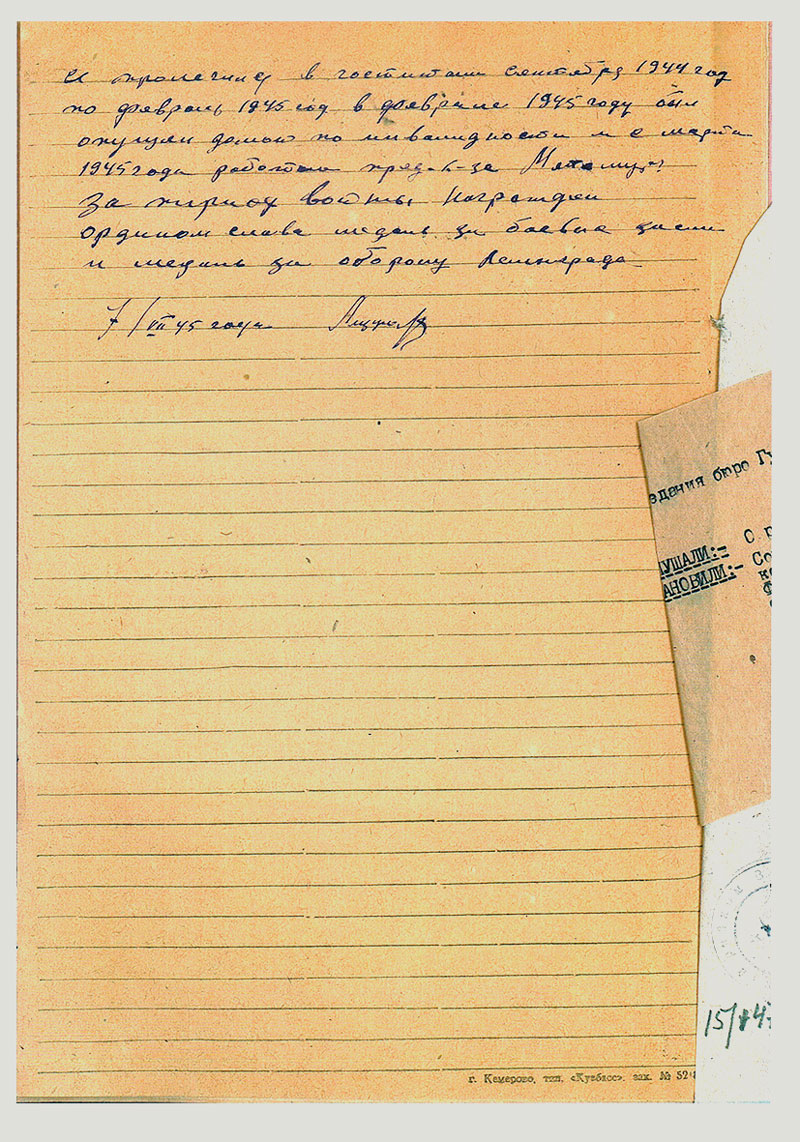 И пролечился в госпитали сентября 1944 год
по февраль 1945 год в феврале 1945 году был
отпущен домой по инвалидности и с марта
1945 года работаю пред. к-за
За период войны награжден
орденом слава медаль за боевые
и медаль за оборону Ленинграда
7/VII 45 года
едания бюро Гу
УШАЛИ:-
АНОВИЛИ:-
С
Со
15/
г. Кемерово, тип. «Кузбасс», зак. № 52